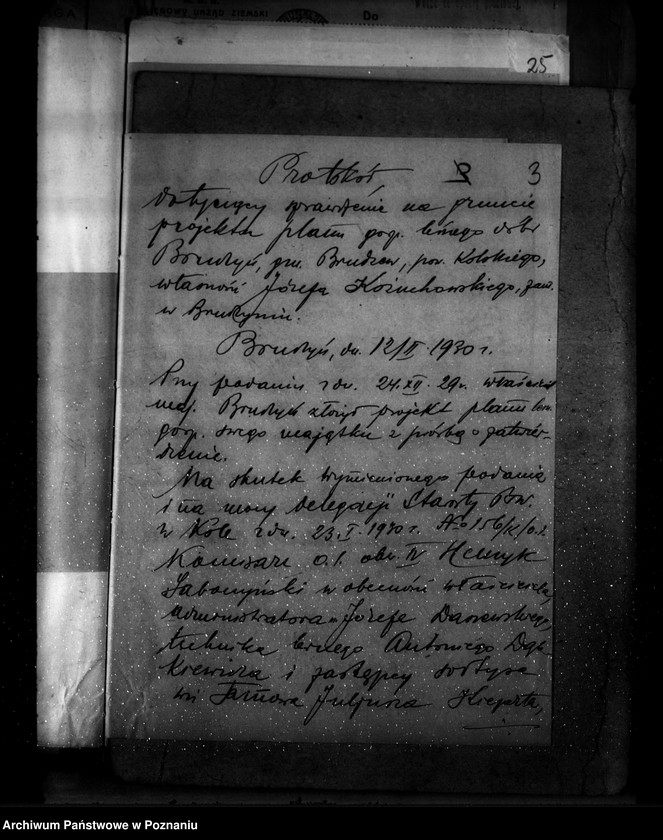 URZĄD ZIEMSKI
Do
25
Protokół 3
dotyczący sprawdzenia na gruncie
projektu planu gosp. leśnego dóbr
Brudzyń, gm. Brudzew, pow. Kolskiego,
własność Józefa Kożuchowskiego, zam.
w Brudzyniu.
Brudzyń, dn. 12/II 1930 r.
Przy podaniu z dn. 24.XII.29r. właściciel
maj. Brudzyń złożył projekt planu
gosp. swego majątku z prośbą o zatwier-
dzenie.
Na skutek wymienionego podania
i na mocy delegacji Starosty Pow.
w Kole z dn. 23.I.1930 r.
Komisarz o.l. obw. IV Henryk
w obecności właściciela,
administratora Józefa
technika leśnego Antoniego Dąb-
kiewicza i zastępcy sołtysa
wsi Juljusza
Archiwum Państwowe w Poznaniu